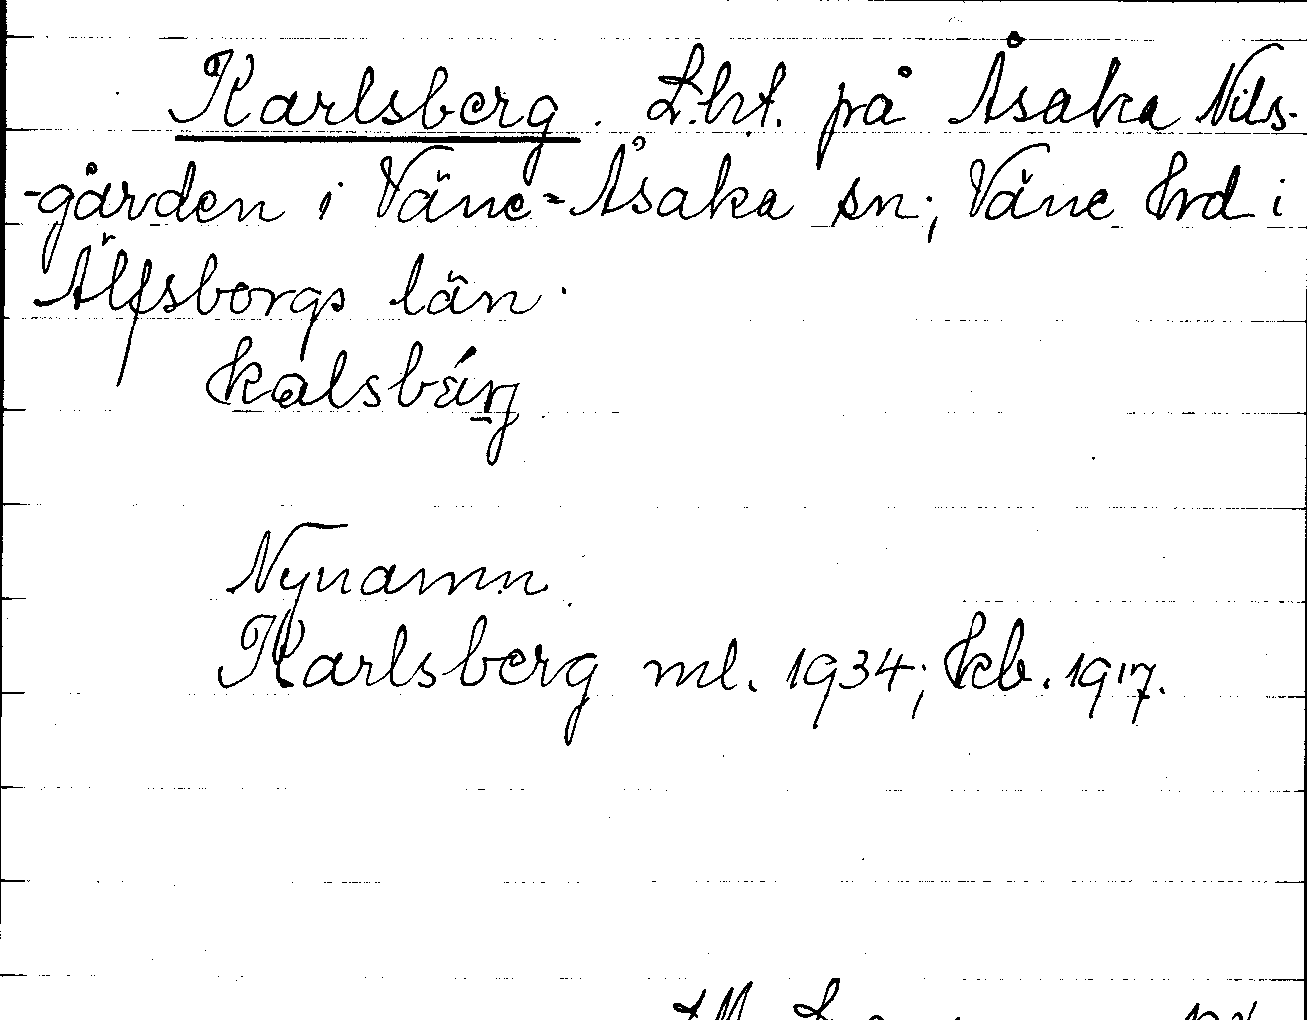 Karlsberg. Lht. på Åsaka Nils-
-gården i Väne-Åsaka sn; Väne hrd i
Älfsborgs län.
Nynamn
Karlsberg ml. 1934; kb. 1917.